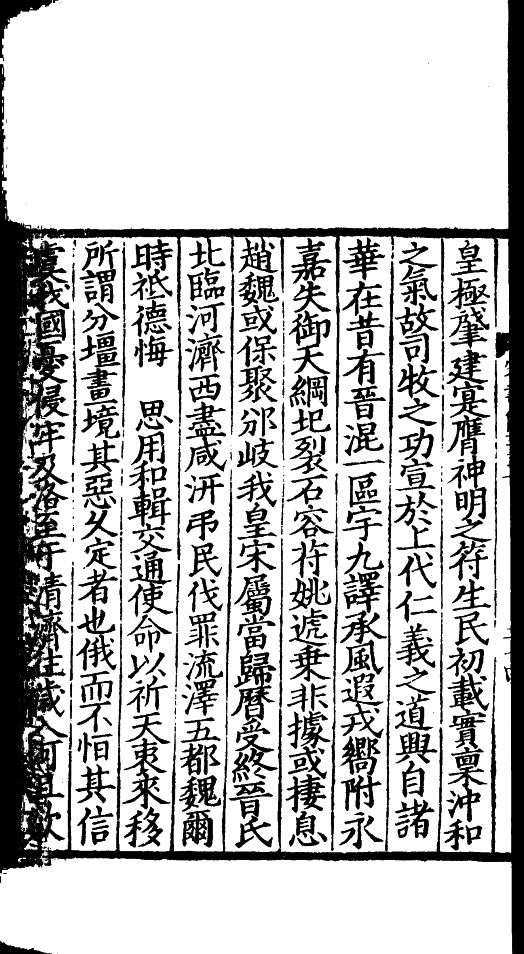 皇極肇建寔膺神明之符生民初載實稟沖和
之氣故司牧之功宣於上代仁義之道興自諸
華在昔有晉混一區宇九譯承風遐戎嚮附永
嘉失御天綱圮裂石容苻姚遞乗非據或棲息
趙魏或保聚邠岐我皇宋屬當歸曆受終晉氏
北臨河濟西盡咸汧弔民伐罪流澤五都魏爾
時祇德悔　思用和輯交通使命以祈天衷來移
所謂分壃畫境其惡久定者也俄而不恒其信
虞我國憂侵牢及洛至于清濟往歲入河且欲